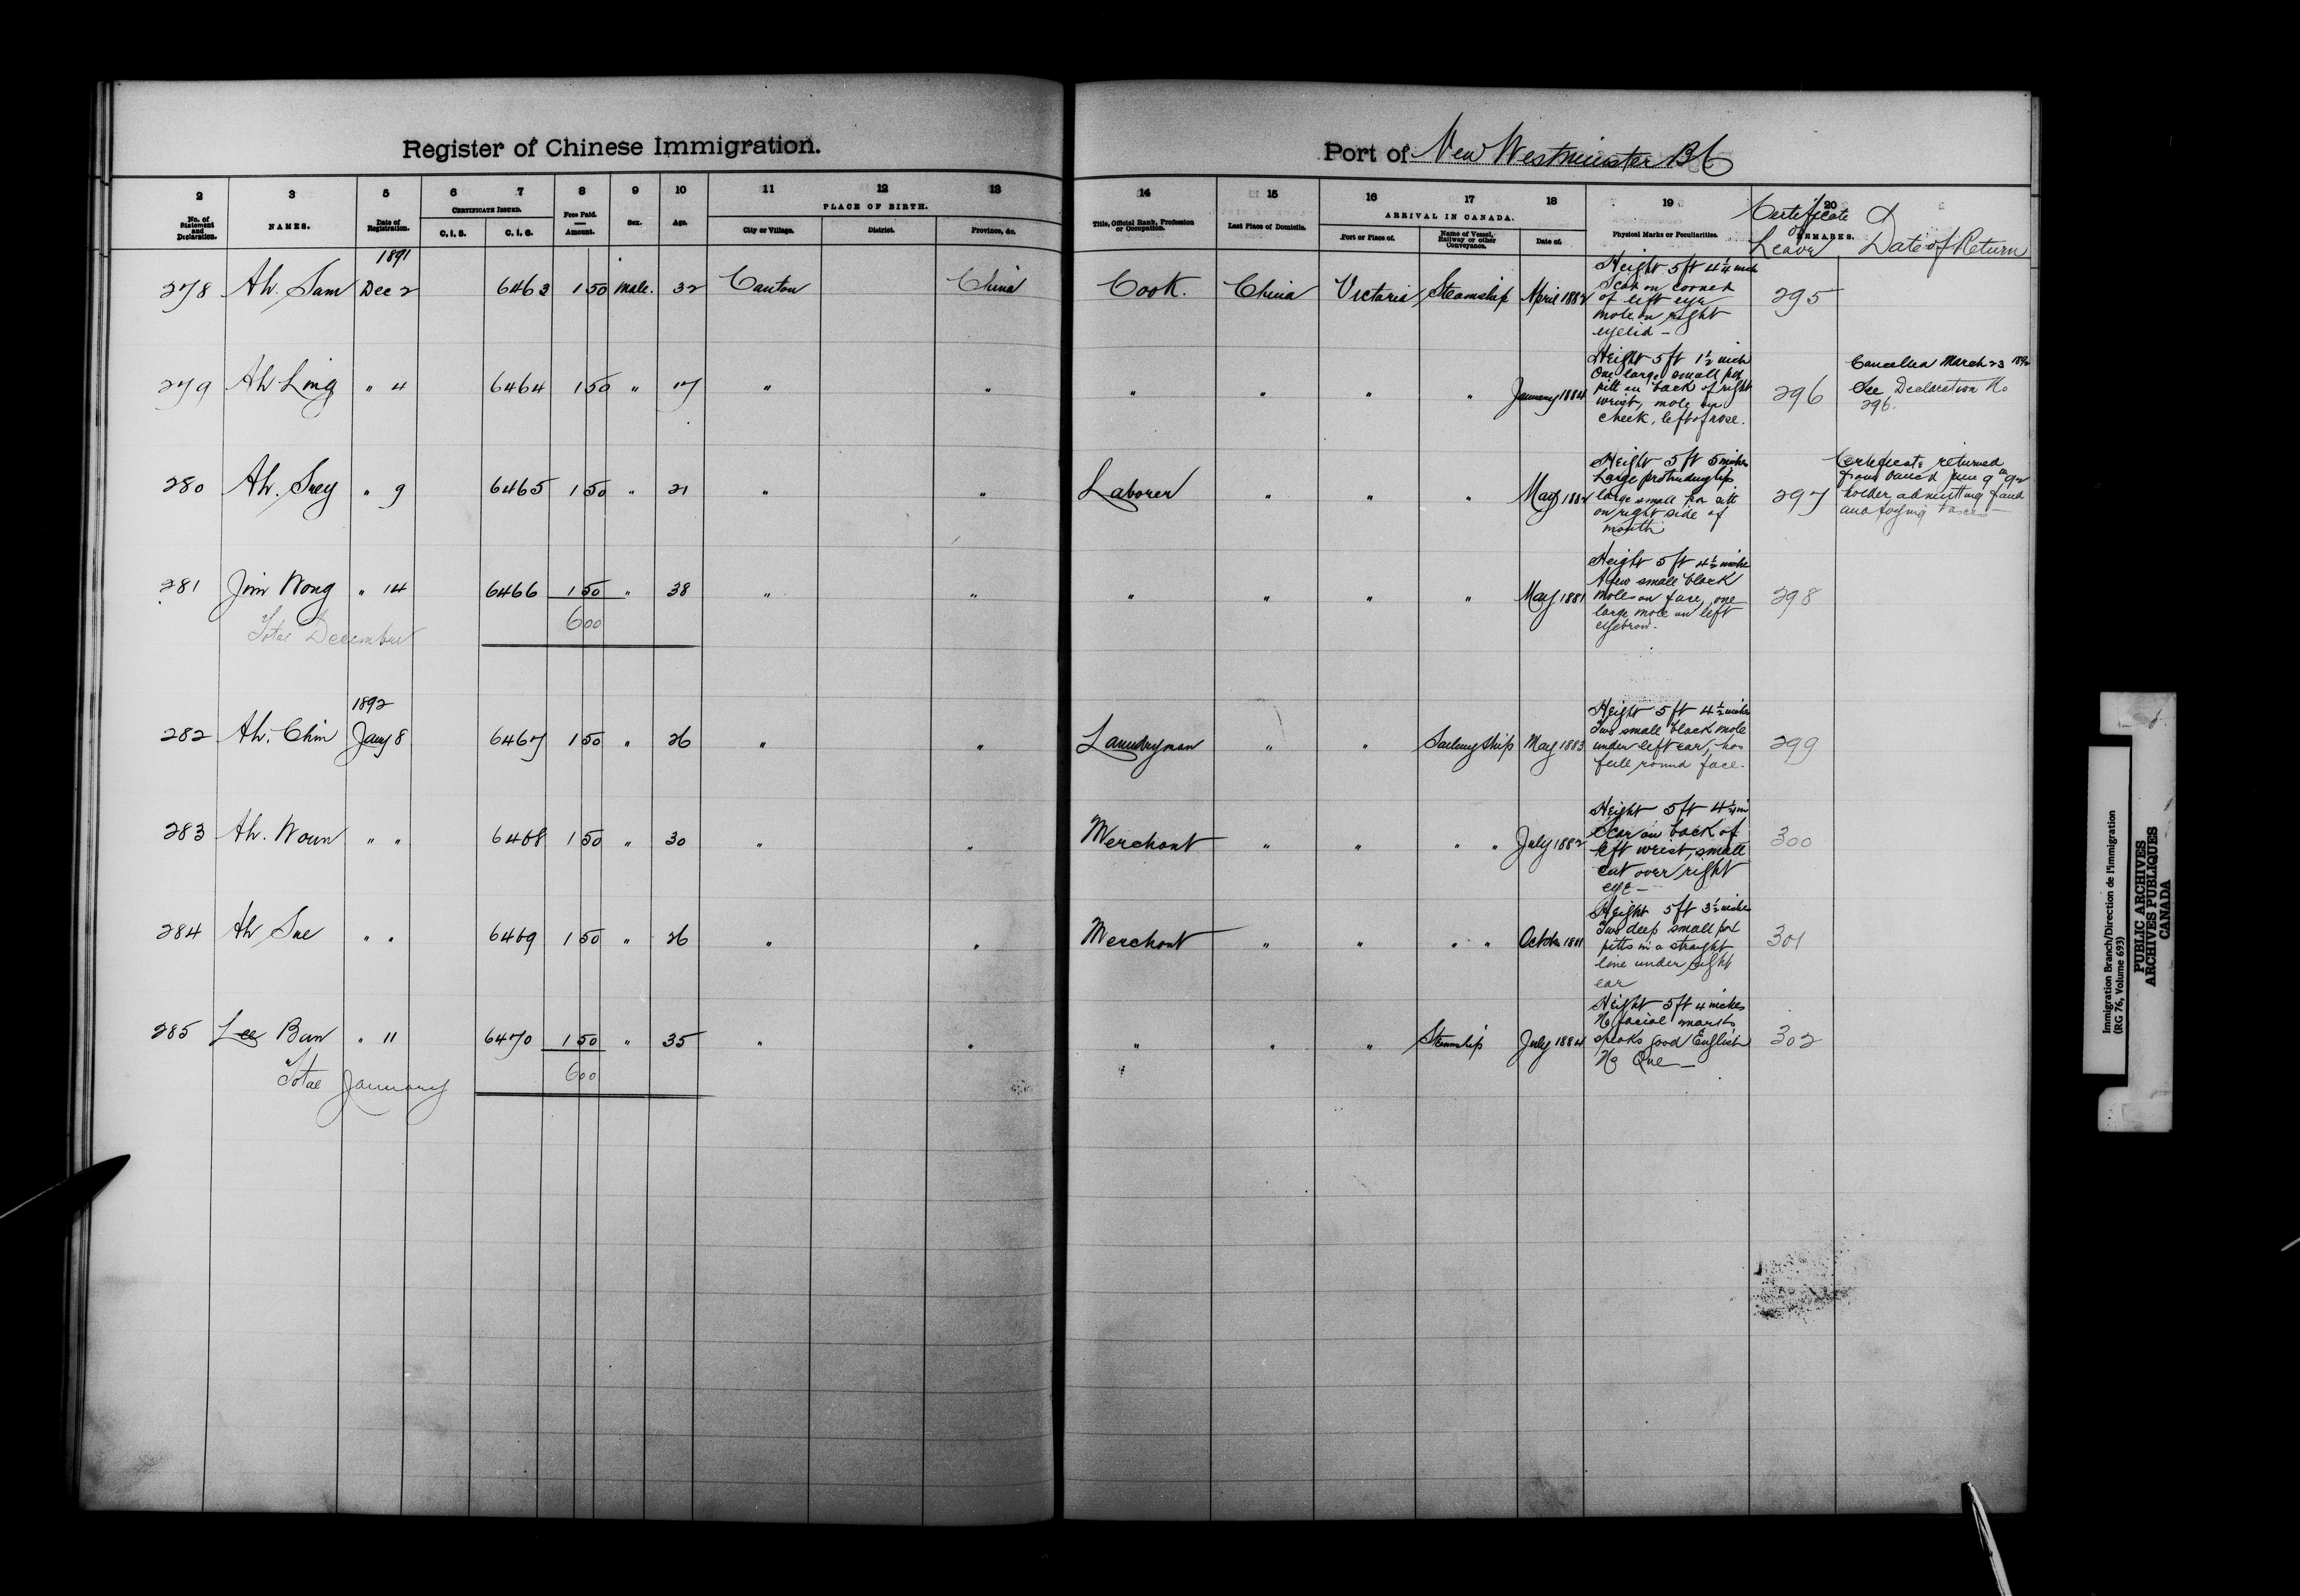 Register of Chinese Immigration.
Port of New Westminster BC
2 3 5 6 7 8 9 10 11 12 13 14 15 16 17 18 19 20
No. of Statement and Declaration.
NAMES.
Date of Registration.
CERTIFICATE ISSUED.
C. I. 5. C. I. 6.
Fees Paid. Amount.
Sex.
Age.
PLACE OF BIRTH.
City or Village. District. Province, &c.
Title, Official Rank, Profession or Occupation.
Last Place of Domicile.
ARRIVAL IN CANADA.
Port or Place of. Name of Vessel, Railway or other Conveyance. Date of.
Physical Marks or Peculiarities.
REMARKS.
Certificate of Leave & Date of Return
1891
278 Ah. Sam Dec 2 6463 1 50 Male. 32 Canton China Cook. China Victoria Steamship April 1882
Height 5 ft 4 1/4 inch
Scar on corner
of left eye
mole on right
eyelid –
295
279 Ah Ling " 4 6464 1 50 " 17 " " " " " " January 1884
Height 5 ft 1 1/2 inch
One large small pox
pitt on back of right
wrist, mole on
cheek, left of nose.
296
Cancelled March 23 1892
See Declaration No
296.
280 Ah. Suey " 9 6465 1 50 " 21 " " Laborer " " " May 1882
Height 5 ft 5 inches
Large protruding lips
large small pox pitt
on right side of
mouth
297
Certificate returned
from June 9th 92
holder admitting
and taxes –
281 Jim Wong " 14 6466 1 50 " 38 " " " " " " May 1881
Height 5 ft 4 1/2 inches
A few small black
moles on face, one
large mole on left
eyebrow.
298
Total December 6 00
1892
282 Ah. Chin Jany 8 6467 1 50 " 26 " " Laundryman " " Sailing Ship May 1883
Height 5 ft 4 1/2 inches
Two small black mole
under left ear, has
full round face.
299
283 Ah. Woun " " 6468 1 50 " 30 " " Merchant " " " " July 1882
Height 5 ft 4 1/4 in
Scar on back of
left wrist, small
cut over right
eye –
300
284 Ah Sue " " 6469 1 50 " 26 " " Merchant " " " " October 1881
Height 5 ft 3 1/2 inches
Two deep small pox
pitts in a straight
line under right
ear
301
285 Lee Bun " 11 6470 1 50 " 35 " " " " " Steamship July 1884
Height 5 ft 4 inches
No facial marks,
speaks good English
No Que –
302
Total January 6 00
Immigration Branch/Direction de l'immigration
(RG 76, Volume 693)
PUBLIC ARCHIVES
ARCHIVES PUBLIQUES
CANADA